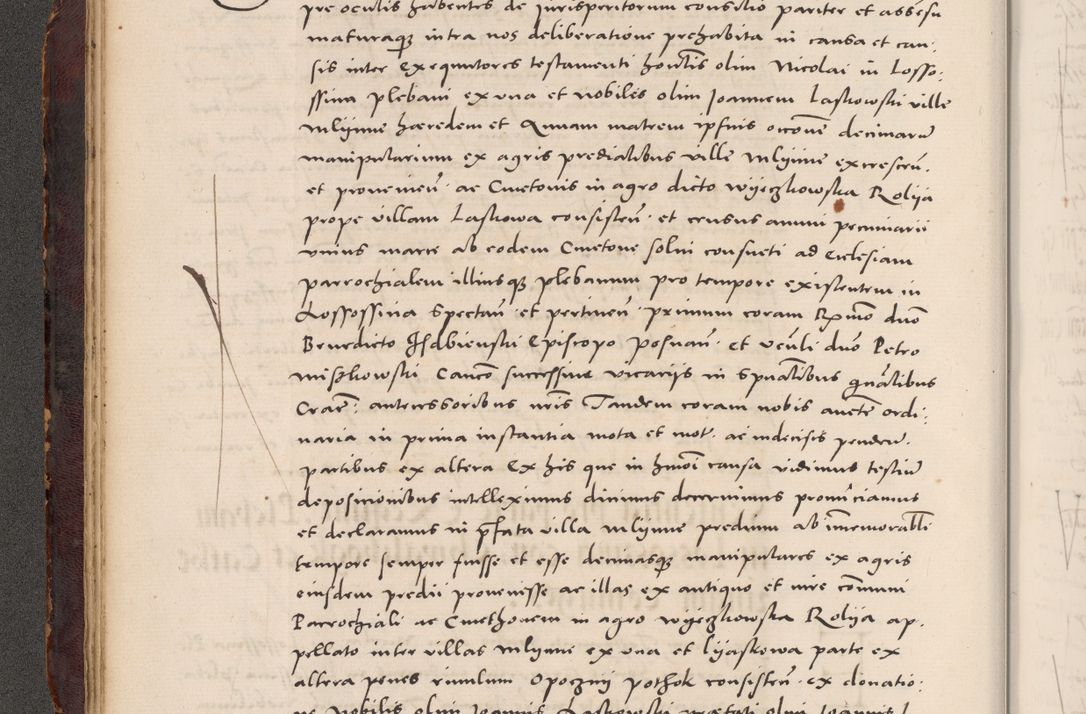 pre oculis habentes de jurisperitorum consilio pariter et assesu
maturaqz intra nos deliberatione prehabita in causa et cau:
sis inter Exequutores testamenti hon̄tis olim Nicolai in Losso:
ssina plebani ex una et nobiles olim Joannem Laskowski ville
Mlÿnne hæredem et Annam matrem ipsius occone decimarū
manipularium ex agris predialibus ville Mlÿnne excrescen̄.
et provenien̄. ac Cmetonis in agro dicto wÿeczkowska Rolÿa
prope villam Laskowa consisten̄. et census annui pecuniarii
unius marce ab eodem Cmetone solui consueti ad Ecclesiam
parrochialem illiusqz plebanum pro tempore existentem in
Lossossina spectan̄ et pertinen̄. primum coram Rx̄mo dno
Benedicto Isdbienski Episcopo Posnan̄. et ven̄li dno Petro
Miszkowski Canco successiue vicarÿs in sp̄ualibus gn̄alibus
Cracē. antecessoribus nr̄is Tandem coram nobis aucte ordi:
naria in prima instantia mota et mot. ac indecisis penden̄.
partibus ex altera Ex his que in hmōi causa vidimus testium
depositionibus intelleximus dicimus decernimus pronūciamus
et declaramus in p̄fata villa Mlÿnne predium ab immemorabili
tempore semper fuisse et esse decimasqz manipulares ex agris
eiusdem predii provenisse ac illas ex antiquo et iure cōmuni
Parrochiali ac Cmethonem in agro wÿeczkowska Rolÿa ap:
pellato inter villas Mlÿnne ex una et lÿaskowa parte ex
altera penes rivulum Opocznÿ pothok consisten̄. ex donatio:
ne Nobilis olim Joannis Laskowski olim Joannis